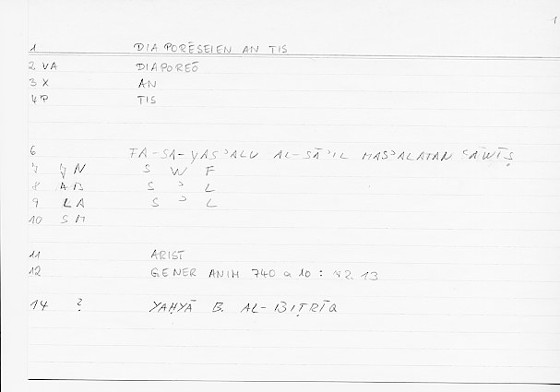 1
1 DIAPORĒSEIEN AN TIS
2 VA DIAPOREŌ
3 X AN
4 P TIS
6 FA-SA-YASʾALU AL-SĀʾIL MASʾALATAN
7 S W F
8 AB S ʾ L
9 LA S ʾ L
10 SM
11 ARIST
12 GENER ANIM 740 a 10 : 82. 13
14 ? YAḤYĀ B. AL-BIṬRĪQ